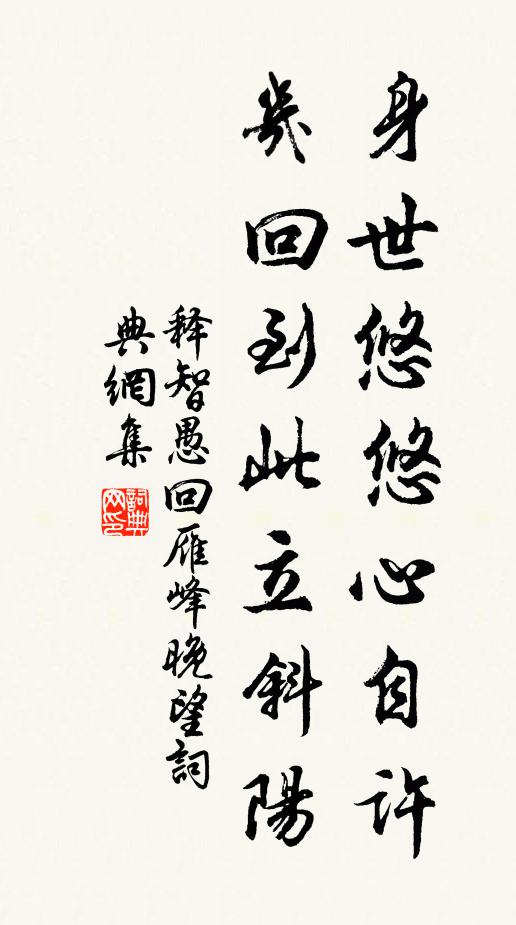 身世悠悠心自許
幾回到此立斜陽
释智愚回雁峰晚望詞
典網集
詞典网印